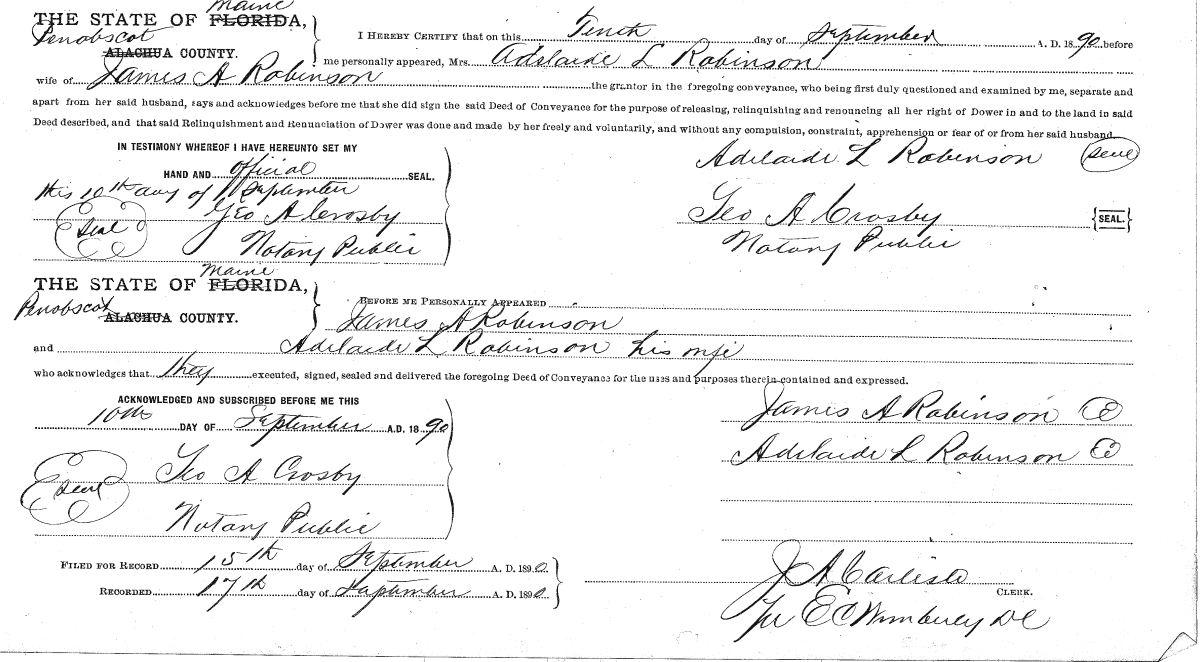 Maine
THE STATE OF FLORIDA,
Penobscot
ALACHUA COUNTY.
I HEREBY CERTIFY that on this Tenth day of September A. D. 1890 before
me personally appeared, Mrs. Adelaide L Robinson
wife of James A Robinson the grantor in the foregoing conveyance, who being first duly questioned and examined by me, separate and
apart from her said husband, says and acknowledges before me that she did sign the said Deed of Conveyance for the purpose of releasing, relinquishing and renouncing all her right of Dower in and to the land in said
Deed described, and that said Relinquishment and Renunciation of Dower was done and made by her freely and voluntarily, and without any compulsion, constraint, apprehension or fear of or from her said husband.
IN TESTIMONY WHEREOF I HAVE HEREUNTO SET MY
HAND AND official SEAL.
this 10th day of September
Geo A Crosby
Seal
Notary Public
Adelaide L Robinson Seal
Geo A Crosby {SEAL.}
Notary Public
Maine
THE STATE OF FLORIDA,
Penobscot
ALACHUA COUNTY.
BEFORE ME PERSONALLY APPEARED
James A Robinson
and Adelaide L Robinson his wife
who acknowledges that they executed, signed, sealed and delivered the foregoing Deed of Conveyance for the uses and purposes therein contained and expressed.
ACKNOWLEDGED AND SUBSCRIBED BEFORE ME THIS
10th DAY OF September A.D. 1890
Geo A Crosby
Seal
Notary Public
James A Robinson
Adelaide L Robinson
FILED FOR RECORD 15th day of September A. D. 1890
RECORDED 17th day of September A. D. 1890
J A Carlisle
CLERK.
Per E C Wimberly DC